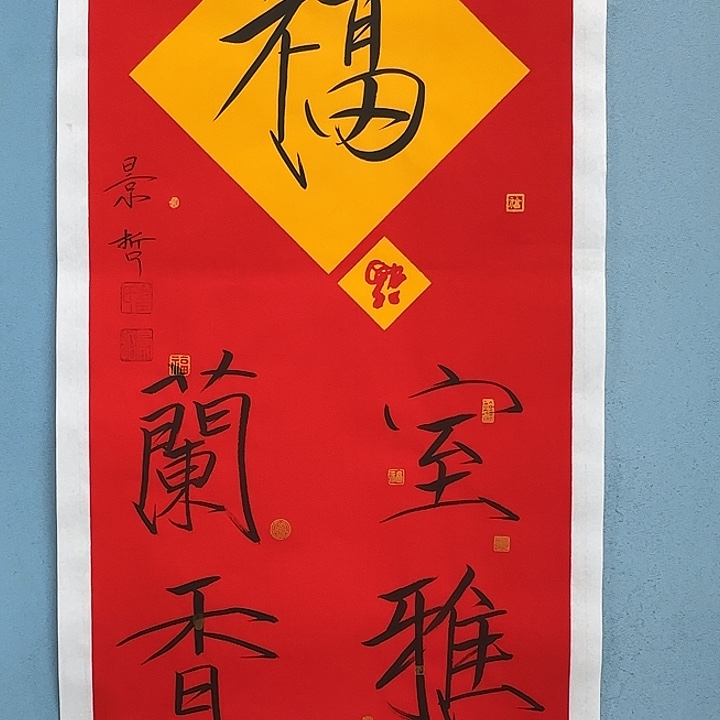 福
室雅
蘭香
景哲
福